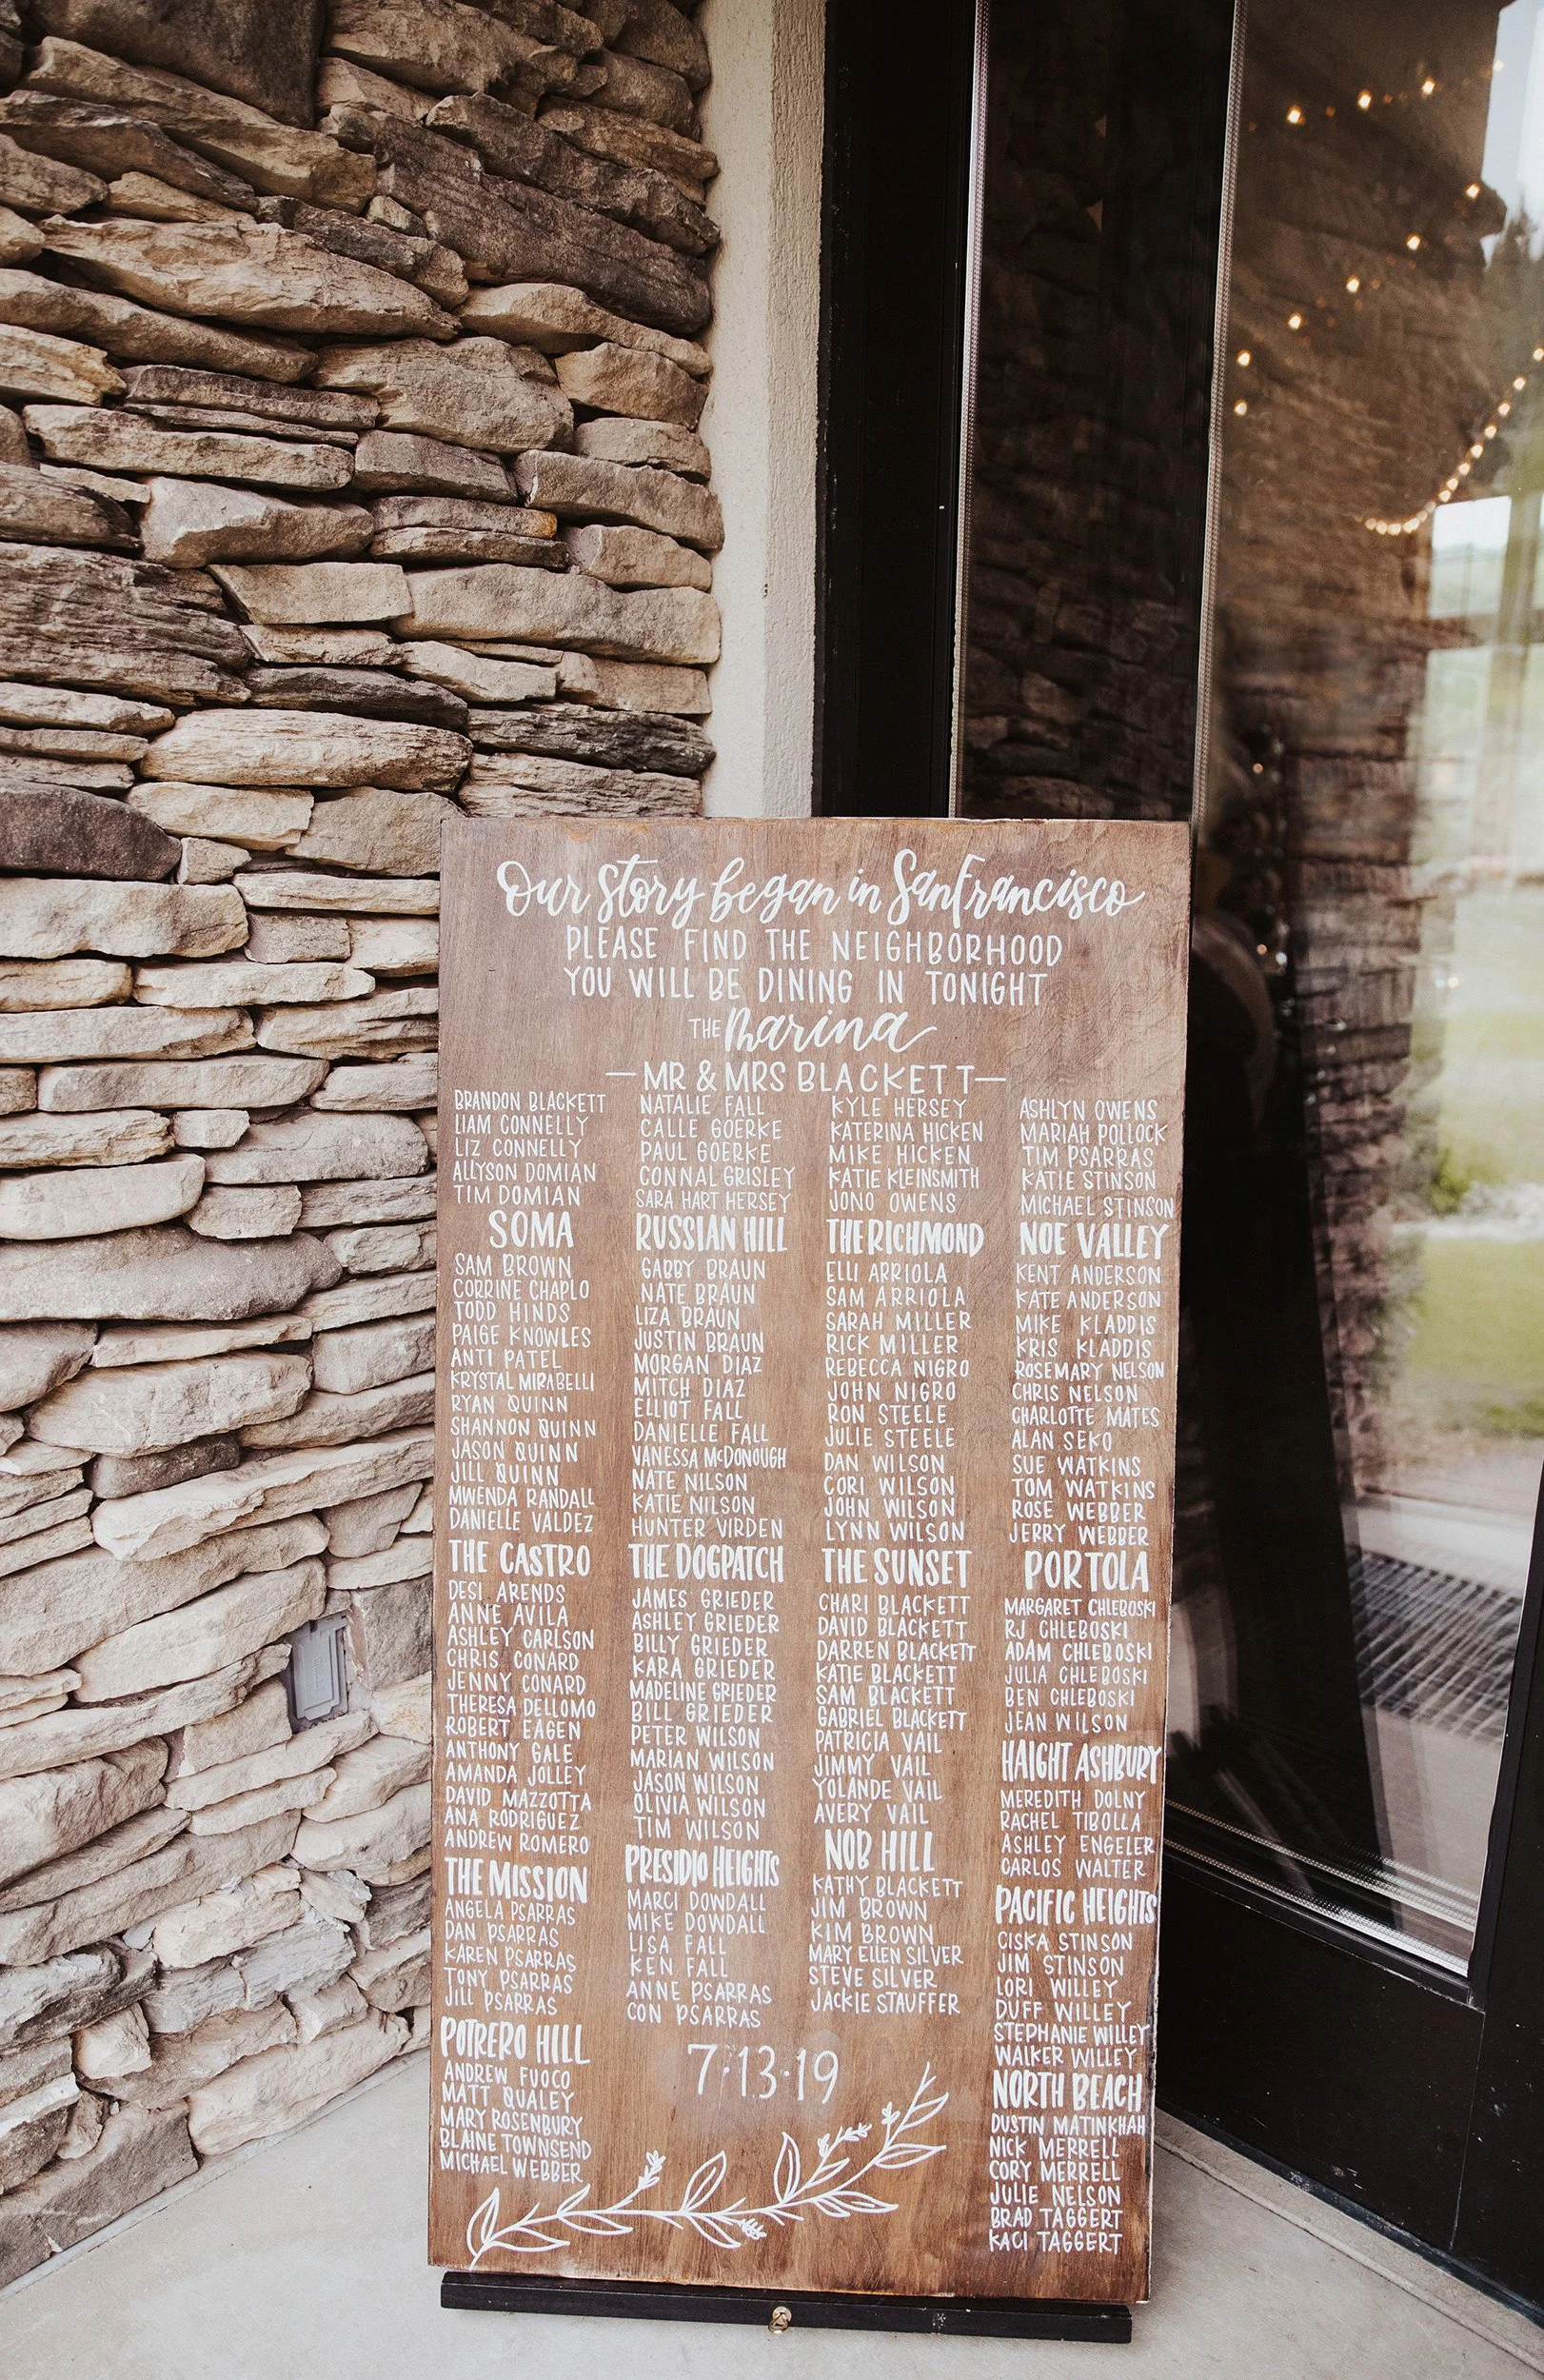 Our Story began in San Francisco
PLEASE FIND THE NEIGHBORHOOD
YOU WILL BE DINING IN TONIGHT
THE Marina
—MR & MRS BLACKETT—
BRANDON BLACKETT
LIAM CONNELLY
LIZ CONNELLY
ALLYSON DOMIAN
TIM DOMIAN
NATALIE FALL
CALLE GOERKE
PAUL GOERKE
CONNAL GRISLEY
SARA HART HERSEY
KYLE HERSEY
KATERINA HICKEN
MIKE HICKEN
KATIE KLEINSMITH
JONO OWENS
ASHLYN OWENS
MARIAH POLLOCK
TIM PSARRAS
KATIE STINSON
MICHAEL STINSON
SOMA
SAM BROWN
CORRINE CHAPLO
TODD HINDS
PAIGE KNOWLES
ANTI PATEL
KRYSTAL MIRABELLI
RYAN QUINN
SHANNON QUINN
JASON QUINN
JILL QUINN
MWENDA RANDALL
DANIELLE VALDEZ
THE CASTRO
DESI ARENDS
ANNE AVILA
ASHLEY CARLSON
CHRIS CONARD
JENNY CONARD
THERESA DELLOMO
ROBERT EAGEN
ANTHONY GALE
AMANDA JOLLEY
DAVID MAZZOTTA
ANA RODRIGUEZ
ANDREW ROMERO
THE MISSION
ANGELA PSARRAS
DAN PSARRAS
KAREN PSARRAS
TONY PSARRAS
JILL PSARRAS
POTRERO HILL
ANDREW FUOCO
MATT QUALEY
MARY ROSENBURY
BLAINE TOWNSEND
MICHAEL WEBBER
RUSSIAN HILL
GABBY BRAUN
NATE BRAUN
LIZA BRAUN
JUSTIN BRAUN
MORGAN DIAZ
MITCH DIAZ
ELLIOT FALL
DANIELLE FALL
VANESSA McDONOUGH
NATE NILSON
KATIE NILSON
HUNTER VIRDEN
THE DOGPATCH
JAMES GRIEDER
ASHLEY GRIEDER
BILLY GRIEDER
KARA GRIEDER
MADELINE GRIEDER
BILL GRIEDER
PETER WILSON
MARIAN WILSON
JASON WILSON
OLIVIA WILSON
TIM WILSON
PRESIDIO HEIGHTS
MARCI DOWDALL
MIKE DOWDALL
LISA FALL
KEN FALL
ANNE PSARRAS
CON PSARRAS
THE RICHMOND
ELLI ARRIOLA
SAM ARRIOLA
SARAH MILLER
RICK MILLER
REBECCA NIGRO
JOHN NIGRO
RON STEELE
JULIE STEELE
DAN WILSON
CORI WILSON
JOHN WILSON
LYNN WILSON
THE SUNSET
CHARI BLACKETT
DAVID BLACKETT
DARREN BLACKETT
KATIE BLACKETT
SAM BLACKETT
GABRIEL BLACKETT
PATRICIA VAIL
JIMMY VAIL
YOLANDE VAIL
AVERY VAIL
NOB HILL
KATHY BLACKETT
JIM BROWN
KIM BROWN
MARY ELLEN SILVER
STEVE SILVER
JACKIE STAUFFER
NOE VALLEY
KENT ANDERSON
KATE ANDERSON
MIKE KLADDIS
KRIS KLADDIS
ROSEMARY NELSON
CHRIS NELSON
CHARLOTTE MATES
ALAN SEKO
SUE WATKINS
TOM WATKINS
ROSE WEBBER
JERRY WEBBER
PORTOLA
MARGARET CHLEBOSKI
RJ CHLEBOSKI
ADAM CHLEBOSKI
JULIA CHLEBOSKI
BEN CHLEBOSKI
JEAN WILSON
HAIGHT ASHBURY
MEREDITH DOLNY
RACHEL TIBOLLA
ASHLEY ENGELER
CARLOS WALTER
PACIFIC HEIGHTS
CISKA STINSON
JIM STINSON
LORI WILLEY
DUFF WILLEY
STEPHANIE WILLEY
WALKER WILLEY
NORTH BEACH
DUSTIN MATINKHAH
NICK MERRELL
CORY MERRELL
JULIE NELSON
BRAD TAGGERT
KACI TAGGERT
7·13·19